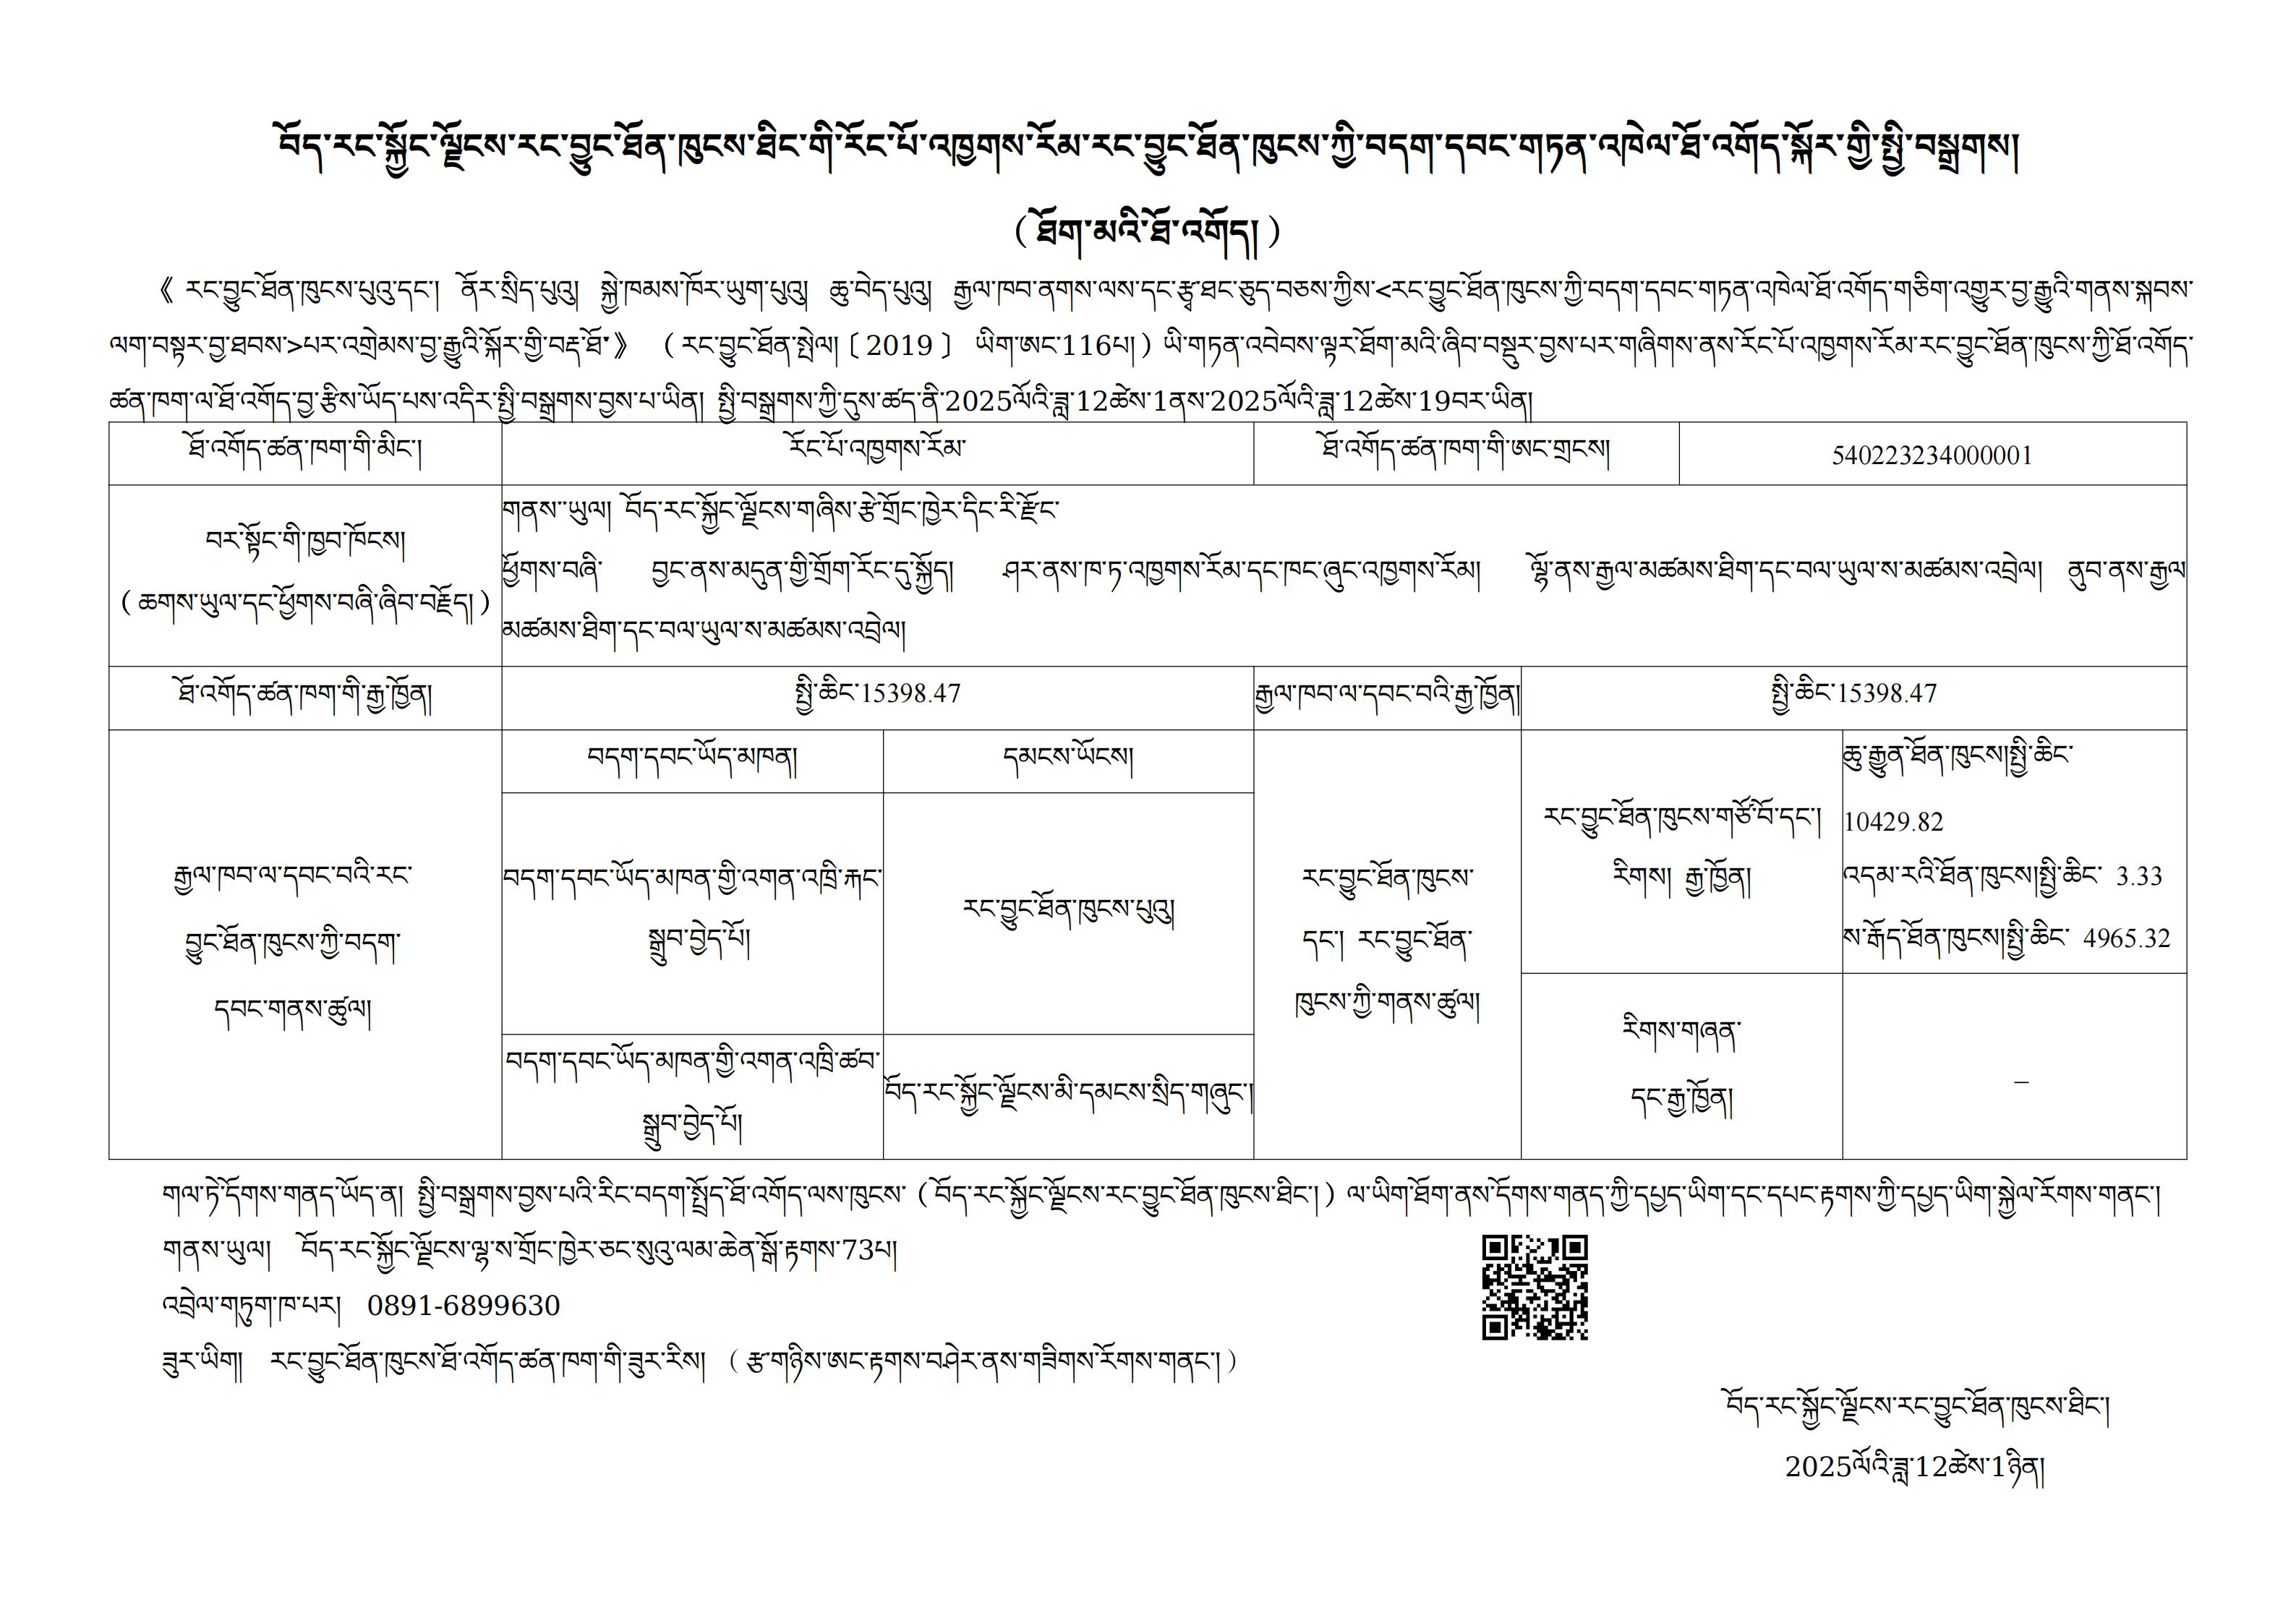 བོད་རང་སྐྱོང་ལྗོངས་རང་བྱུང་ཐོན་ཁུངས་ཐིང་གི་རོང་པོ་འཁྱགས་རོམ་རང་བྱུང་ཐོན་ཁུངས་ཀྱི་བདག་དབང་གཏན་འཁེལ་ཐོ་འགོད་སྐོར་གྱི་སྤྱི་བསྒྲགས།
（ཐོག་མའི་ཐོ་འགོད།）
《 རང་བྱུང་ཐོན་ཁུངས་པུའུ་དང་། ནོར་སྲིད་པུའུ། སྐྱེ་ཁམས་ཁོར་ཡུག་པུའུ། ཆུ་བེད་པུའུ། རྒྱལ་ཁབ་ནགས་ལས་དང་རྩྭ་ཐང་ཅུད་བཅས་ཀྱིས་<རང་བྱུང་ཐོན་ཁུངས་ཀྱི་བདག་དབང་གཏན་འཁེལ་ཐོ་འགོད་གཅིག་འགྱུར་བྱ་རྒྱུའི་གནས་སྐབས་
ལག་བསྟར་བྱ་ཐབས་>པར་འགྲེམས་བྱ་རྒྱུའི་སྐོར་གྱི་བརྡ་ཐོ་》 （རང་བྱུང་ཐོན་སྤེལ།〔2019〕 ཡིག་ཨང་116པ།）ཡི་གཏན་འབེབས་ལྟར་ཐོག་མའི་ཞིབ་བསྡུར་བྱས་པར་གཞིགས་ནས་རོང་པོ་འཁྱགས་རོམ་རང་བྱུང་ཐོན་ཁུངས་ཀྱི་ཐོ་འགོད་
ཚན་ཁག་ལ་ཐོ་འགོད་བྱ་རྩིས་ཡོད་པས་འདིར་སྤྱི་བསྒྲགས་བྱས་པ་ཡིན། སྤྱི་བསྒྲགས་ཀྱི་དུས་ཚད་ནི་2025ལོའི་ཟླ་12ཚེས་1ནས་2025ལོའི་ཟླ་12ཚེས་19བར་ཡིན།
ཐོ་འགོད་ཚན་ཁག་གི་མིང་། རོང་པོ་འཁྱགས་རོམ་ ཐོ་འགོད་ཚན་ཁག་གི་ཨང་གྲངས། 540223234000001
བར་སྟོང་གི་ཁྱབ་ཁོངས།
（ཆགས་ཡུལ་དང་ཕྱོགས་བཞི་ཞིབ་བརྗོད།）
གནས་་ཡུལ། བོད་རང་སྐྱོང་ལྗོངས་གཞིས་རྩེ་གྲོང་ཁྱེར་དིང་རི་རྫོང་
ཕྱོགས་བཞི་ བྱང་ནས་མདུན་གྱི་གྲོག་རོང་དུ་སྐྱོད། ཤར་ནས་ཁ་ཏ་འཁྱགས་རོམ་དང་ཁང་ཞུང་འཁྱགས་རོམ། ལྷོ་ནས་རྒྱལ་མཚམས་ཐིག་དང་བལ་ཡུལ་ས་མཚམས་འབྲེལ། ནུབ་ནས་རྒྱལ
མཚམས་ཐིག་དང་བལ་ཡུལ་ས་མཚམས་འབྲེལ།
ཐོ་འགོད་ཚན་ཁག་གི་རྒྱ་ཁྱོན། སྤྱི་ཆིང་15398.47 རྒྱལ་ཁབ་ལ་དབང་བའི་རྒྱ་ཁྱོན། སྤྱི་ཆིང་15398.47
རྒྱལ་ཁབ་ལ་དབང་བའི་རང་
བྱུང་ཐོན་ཁུངས་ཀྱི་བདག་
དབང་གནས་ཚུལ།
བདག་དབང་ཡོད་མཁན། དམངས་ཡོངས།
བདག་དབང་ཡོད་མཁན་གྱི་འགན་འཁྲི་རྐང་
སྒྲུབ་བྱེད་པོ།
རང་བྱུང་ཐོན་ཁུངས་པུའུ།
བདག་དབང་ཡོད་མཁན་གྱི་འགན་འཁྲི་ཚབ་
སྒྲུབ་བྱེད་པོ།
བོད་རང་སྐྱོང་ལྗོངས་མི་དམངས་སྲིད་གཞུང་།
རང་བྱུང་ཐོན་ཁུངས་
དང་། རང་བྱུང་ཐོན་
ཁུངས་ཀྱི་གནས་ཚུལ།
རང་བྱུང་ཐོན་ཁུངས་གཙོ་བོ་དང་།
རིགས། རྒྱ་ཁྱོན།
ཆུ་རྒྱུན་ཐོན་ཁུངས།སྤྱི་ཆིང་
10429.82
འདམ་རའི་ཐོན་ཁུངས།སྤྱི་ཆིང་ 3.33
ས་རྒོད་ཐོན་ཁུངས།སྤྱི་ཆིང་ 4965.32
རིགས་གཞན་
དང་རྒྱ་ཁྱོན།
–
གལ་ཏེ་དོགས་གནད་ཡོད་ན། སྤྱི་བསྒྲགས་བྱས་པའི་རིང་བདག་སྤྲོད་ཐོ་འགོད་ལས་ཁུངས་（བོད་རང་སྐྱོང་ལྗོངས་རང་བྱུང་ཐོན་ཁུངས་ཐིང་།）ལ་ཡིག་ཐོག་ནས་དོགས་གནད་ཀྱི་དཔྱད་ཡིག་དང་དཔང་རྟགས་ཀྱི་དཔྱད་ཡིག་སྐྱེལ་རོགས་གནང་།
གནས་ཡུལ། བོད་རང་སྐྱོང་ལྗོངས་ལྷ་ས་གྲོང་ཁྱེར་ཅང་སུའུ་ལམ་ཆེན་སྒོ་རྟགས་73པ།
འབྲེལ་གཏུག་ཁ་པར། 0891-6899630
ཟུར་ཡིག། རང་བྱུང་ཐོན་ཁུངས་ཐོ་འགོད་ཚན་ཁག་གི་ཟུར་རིས། （རྩ་གཉིས་ཨང་རྟགས་བཤེར་ནས་གཟིགས་རོགས་གནང་།）
བོད་རང་སྐྱོང་ལྗོངས་རང་བྱུང་ཐོན་ཁུངས་ཐིང་།
2025ལོའི་ཟླ་12ཚེས་1ཉིན།